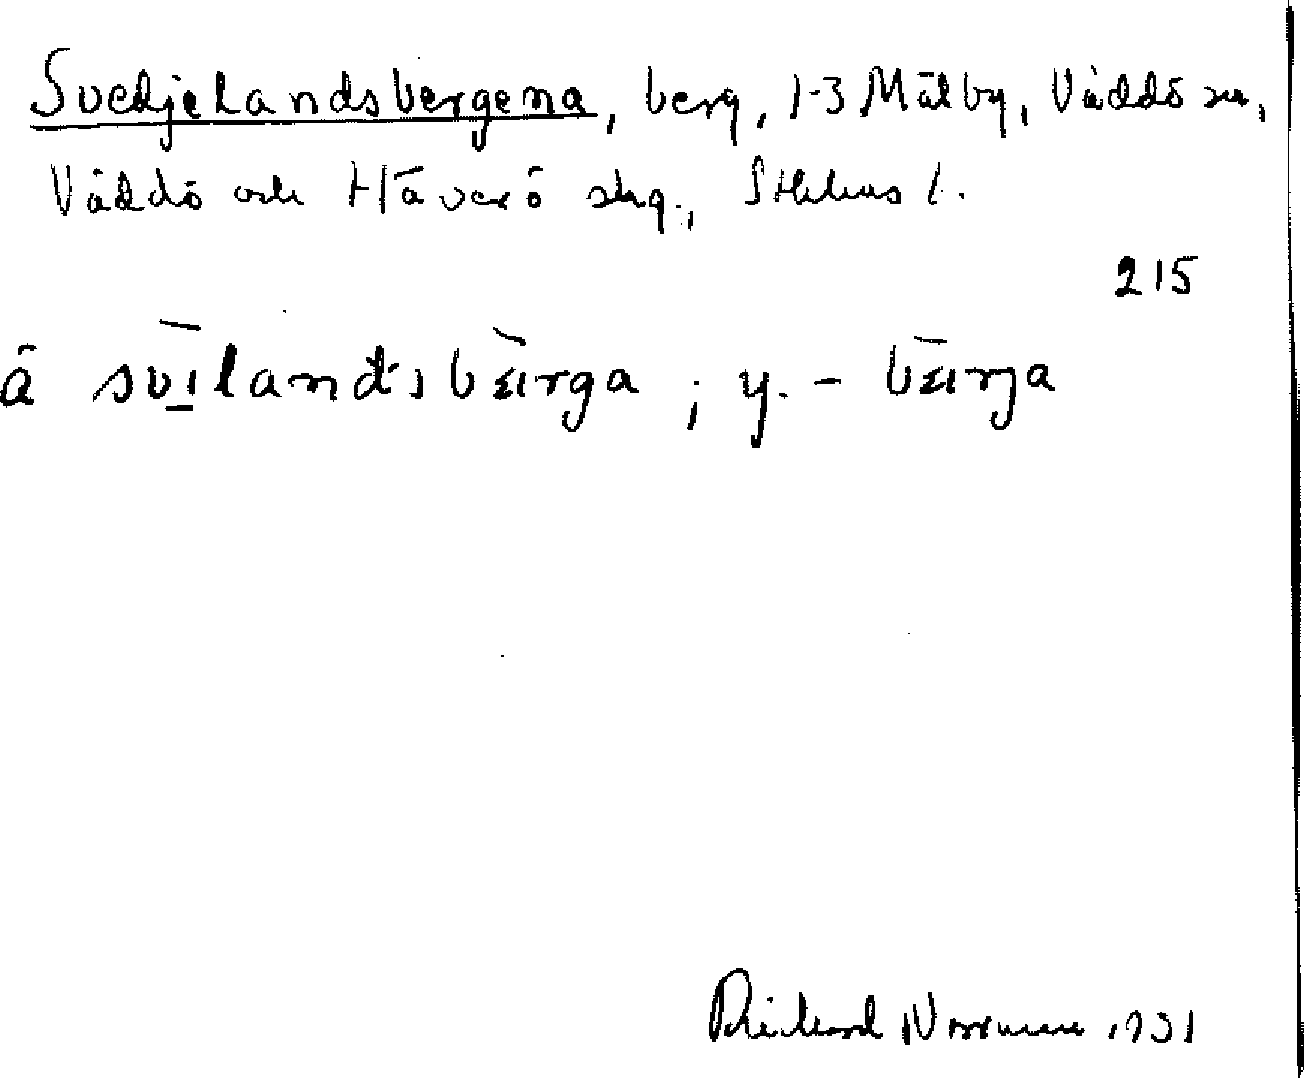 Svedjelandsbergena, berg, 1-3 Mälby, Väddö sn,
Väddö och Häverö skg., Sthlms l.
215
å svilandsbärga ; y. - bärja
Rickard Norrman 1931